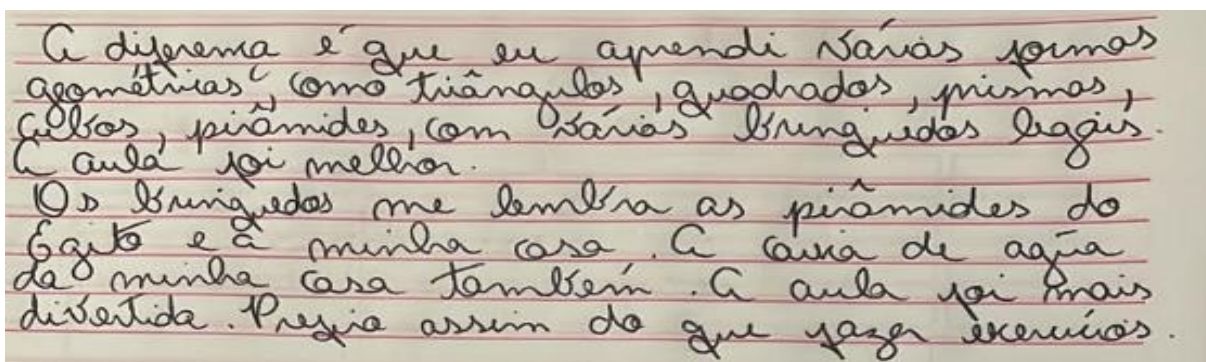 A diferença é que eu aprendi várias formas
geométricas, como triângulos, quadrados, prismas,
cubos, pirâmides, com várias brinquedos legais.
A aula foi melhor.
Os brinquedos me lembra as pirâmides do
Egito e a minha casa. A caixa de agúa
da minha casa também. A aula foi mais
divertida. Prefiro assim do que fazer exercícios.